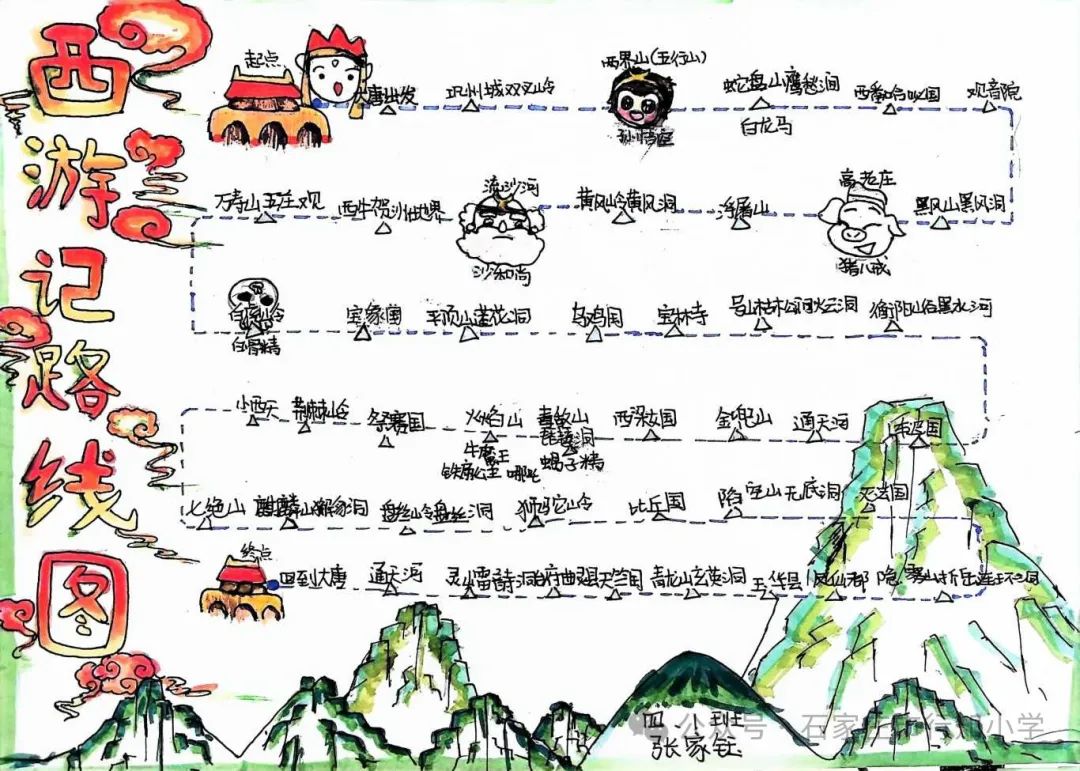 西游记路线图
起点
大唐出发
巩州城双叉岭
两界山(五行山)
孙悟空
蛇盘山鹰愁涧
白龙马
西番哈咇国
观音院
万寿山五庄观
西牛贺洲世界
流沙河
沙和尚
黄风岭黄风洞
浮屠山
高老庄
猪八戒
黑风山黑风洞
白虎岭
白骨精
宝象国
平顶山莲花洞
乌鸡国
宝林寺
号山枯松涧火云洞
衡阳山峪黑水河
小西天
荆棘岭
祭赛国
火焰山
牛魔王
铁扇公主 哪吒
毒敌山
琵琶洞
蝎子精
西梁女国
金兜山
通天河
车迟国
七绝山
麒麟山獬豸洞
盘丝岭盘丝洞
狮驼岭
比丘国
陷空山无底洞
灭法国
终点
回到大唐
通天河
灵山雷音寺
天竺国
青龙山玄英洞
玉华县
凤仙郡
隐雾山折岳连环洞
四 班
张家钰
公众号 · 石家庄市行知小学